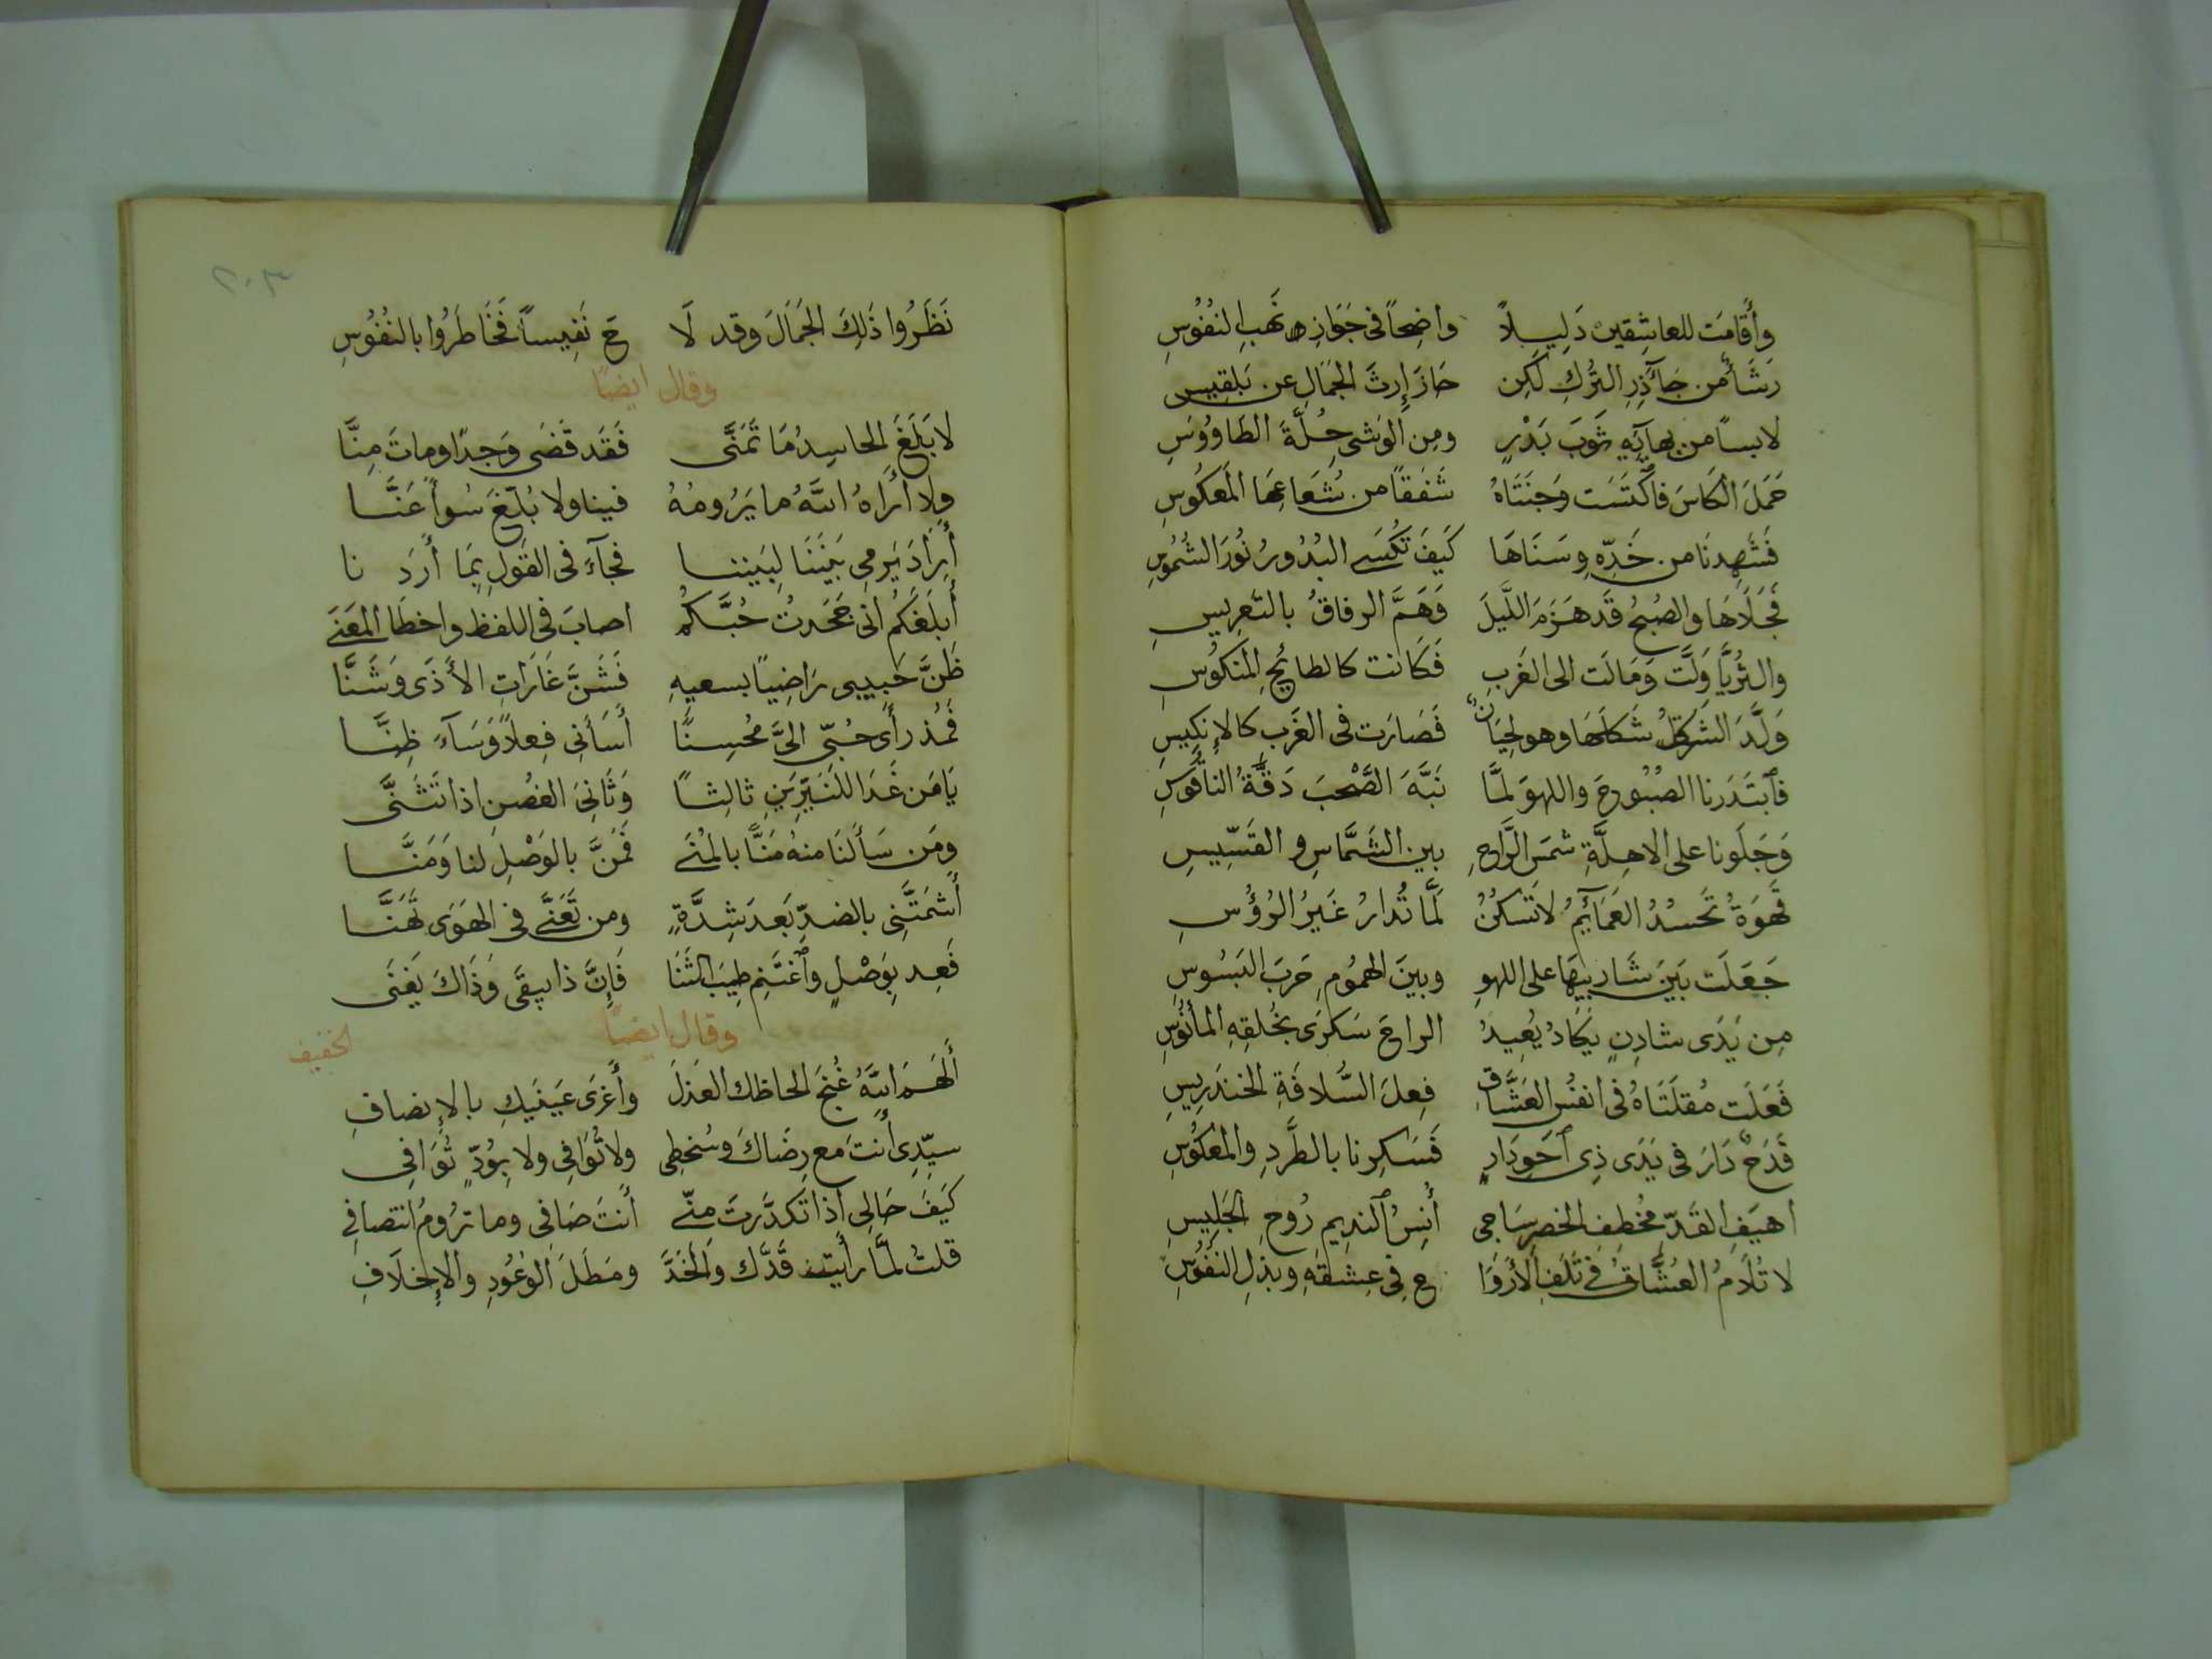 وأَقامَت للعاشِقين دَلِيلاً واضِحاً فى جَوَازِ نَهبِ النُفُوُسِ
رَشَأ من جَآذِرِ التُركِ لَكِن حَازَ إِرثَ الجَمَالِ عن بَلقِيسِ
لابساً من بهايِهِ ثَوبَ بَدْرٍ ومِن الوَشى حِلَّةَ الطَاوُوسِ
حَمَلَ الكَاسَ فاكْتَسَت وَجنَتَاهُ شَفَقًا من شُعَاعِهَا المَعكُوسِ
فَشَهِدنَا من خَدِّهِ وسَنَاهَا كَيفَ تُكسَى البُدُورُ نُورَ الشُمُوسِ
فَجَلَاهَا والصُبحُ قَد هَزَمَ اللَّيلَ وَهَمَّ الرفاقُ بالتَعرِيسِ
والثُرَيَّا وَلَّت وَمَالَت الى الغَربِ فَكَانت كالطائِحِ المَنكوُسِ
وَلَّدَ الشَرقُ شَكلَهَا وهو لحيَانُ فَصَارَت فى الغَرب كالاِنكِيسِ
فَابتَدَرنا الصُبُوحَ واللهوَ لمَّا نَبَّهَ الصَّحبَ دَقَّةُ الناقُوسِ
وَجَلَونا على الاهِلَّةِ شمسَ الرَّاحِ بين الشَمَّاسِ والقَسِّيسِ
قَهوَةٌ تَحسُدُ العَمَآئِمُ لا تَسكُنُ لَمَّا تُدارُ غَيرُ الرُؤُسِ
جَعَلَت بَينَ شَارِبِيهَا على اللهوِ وبينَ الهمُومِ حَربَ البَسُوسِ
مِن يَدَى شادِنٍ يَكَادُ يُعِيدُ الراحَ سَكرَى بخُلقِهِ المأنُوسِ
فَعَلَت مُقلَتَاهُ فى انفُسِ العُشَّاقِ فِعلَ السُّلافَةِ الخَندَرِيسِ
قَدَحٌ دَارَ فى يَدَى ذِى اَحوِرَارٍ فَسَكِرنا بالطَّردِ والمَعكُوسِ
اهيَفِ القَدِّ مُخطَفِ الخصرِ سَاجى أُنسِ النديمِ رُوحِ الجَلِيسِ
لا تُلَامُ العُشَّاقُ فى تَلَفِ الأَروَا حِ فى عِشقَهِ وبذلِ النفُوسِ
٢٠٣
نَظَرُوا ذَلِكَ الجَمَالَ وقد لَا حَ نَفِيساً فَخَاطَرُوا بالنُفُوُسِ
وقال ايضًا
لا بَلَغَ الحاسِدُ مَا تَمَنَّى فَقَد قَضَى وَجدًا وماتَ مِنَّا
ولا أَرَاهُ اللَّهُ ما يَرُومُهُ فينا ولا بُلِّغَ سُوأً عَنَّا
أَرَادَ يَرمِى بَينَنَا لِبَيننا فجآءَ فى القَولِ بِمَا أَرَدنا
أَبلَغَكُم انى جَحَدتُ حُبَّكُم اصابَ فى اللفظ واخطَا المَعنَى
ظَنَّ حَبِيبى رَاضِيًا بسعيهِ فَشَنَّ غَارَاتِ الأَذَى وَشَنَّا
فَمُذ رأَى حُبِّى اليَّ مُحسِنًا أَسَأَنِى فِعلاً وَسَآءَ ظِنَّا
يَا مَن غَدَا للنَيِّرَينِ ثالِثًا وَثَانِىَ الغصُنِ اذا تَثَنَّى
ومَن سَأَلنَا منهُ مَنًّا بالمُنَى فَمَنَّ بالوَصْلِ لنا وَمَنَّا
أَشمَتَّنِى بالضدِّ بَعدَ شِدَّةٍ ومن تَعَنَّى فى الهَوَى تَهَنَّا
فَعِد بِوَصْلٍ واَغتَنِم طِيبَ الثَنَا فَإِنَّ ذا يبقَى وَذَاكَ يَفنَى
وقال ايضًا
الخفيف
أَلهَمَ اللَّهُ غُنجَ لحاظك العَدلَ وأَغرَى عَينَيكِ بالإنصافِ
سيّدِى أَنتَ مع رِضَاكَ وسُخطِى ولا تُوَافِى ولا بِوُدٍّ تُوَافِى
كَيفَ حَالِى اذا تَكَدَّرتَ منّى أَنتَ صَافِى وما ترُومُ انتصافى
قلتُ لمَّا رأَيتُ قَدَّك والخَدَّ ومَطلَ الوُعُودِ والإِخلَافِ